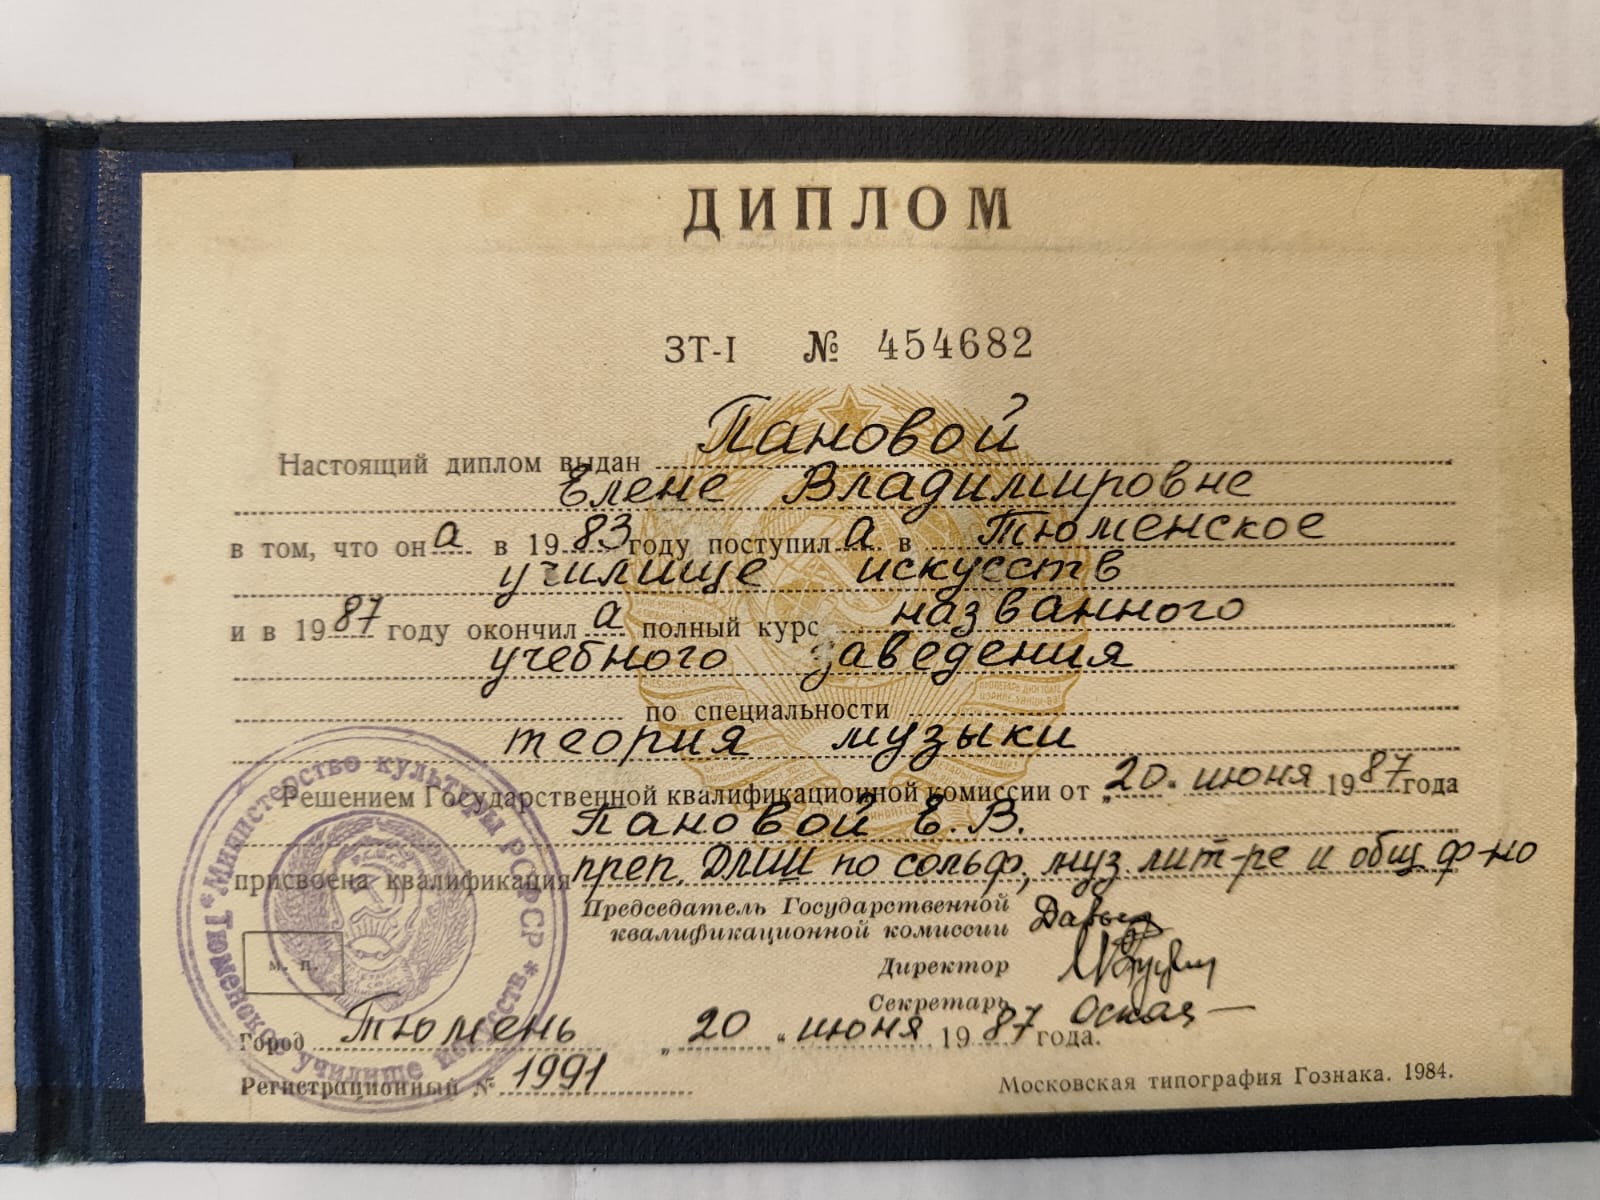 ДИПЛОМ
ЗТ-I № 454682
Настоящий диплом выдан Пановой
Елене Владимировне
в том, что она в 1983 году поступила в Тюменское
училище искусств
и в 1987 году окончила полный курс названного
учебного заведения
по специальности
теория музыки
Решением Государственной квалификационной комиссии от „20" июня 1987 года
Пановой Е.В.
присвоена квалификация преп. ДМШ по сольф, муз.лит-ре и общ ф-но
Председатель Государственной
квалификационной комиссии
Директор
Секретарь
Министерство культуры РСФСР * Тюменское училище искусств *
м. п.
Город Тюмень „20" июня 1987 года.
Регистрационный № 1991
Московская типография Гознака. 1984.